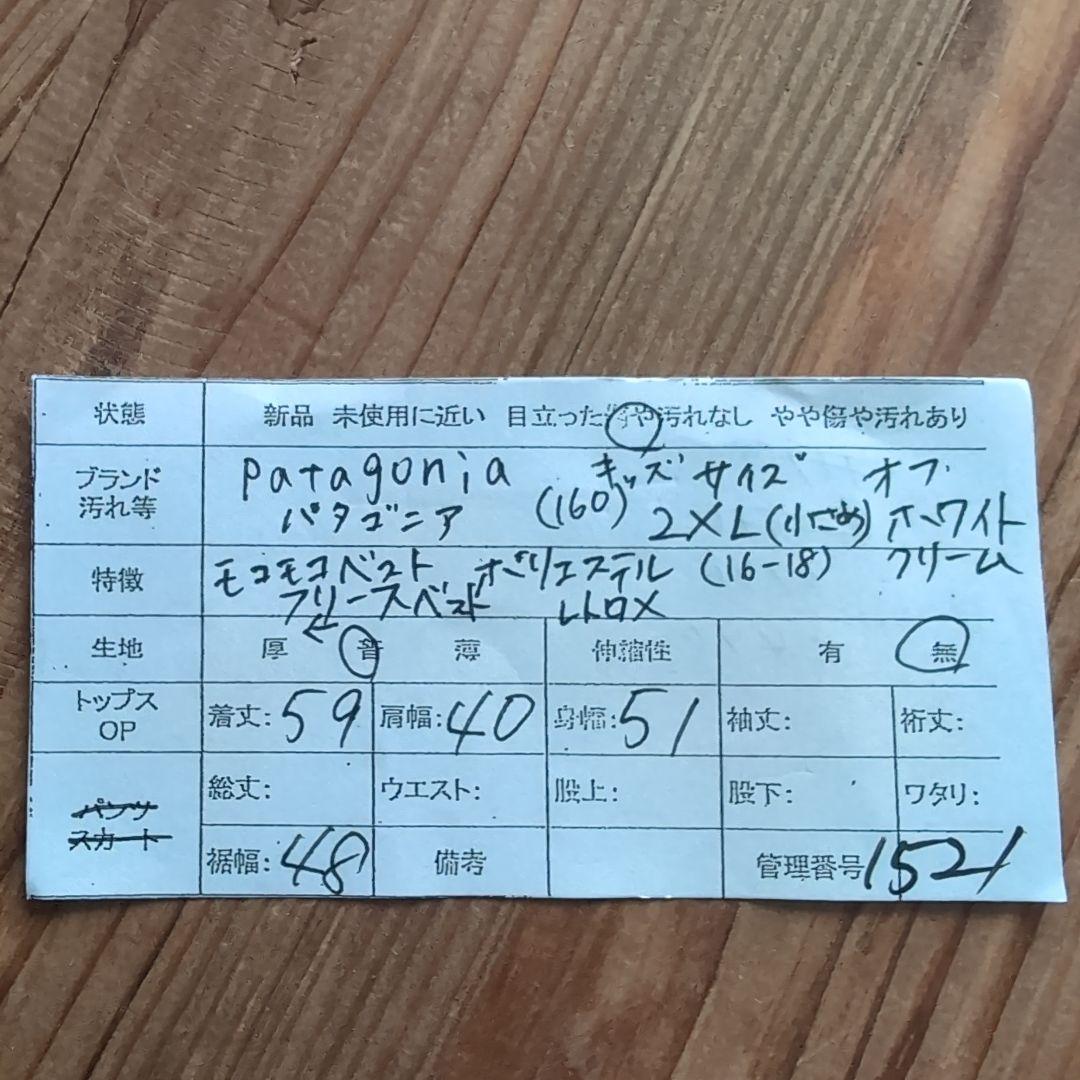 状態 新品 未使用に近い 目立った傷や汚れなし やや傷や汚れあり
ブランド 汚れ等 patagonia キッズサイズ オフ
パタゴニア (160) 2XL (小さめ) ホワイト
特徴 モコモコベスト ポリエステル (16-18) クリーム
フリースベスト レトロX
生地 厚 ← 普 薄 伸縮性 有 無
トップス OP 着丈: 59 肩幅: 40 身幅: 51 袖丈: 裄丈:
パンツ スカート 総丈: ウエスト: 股上: 股下: ワタリ:
裾幅: 48 備考 管理番号 1521